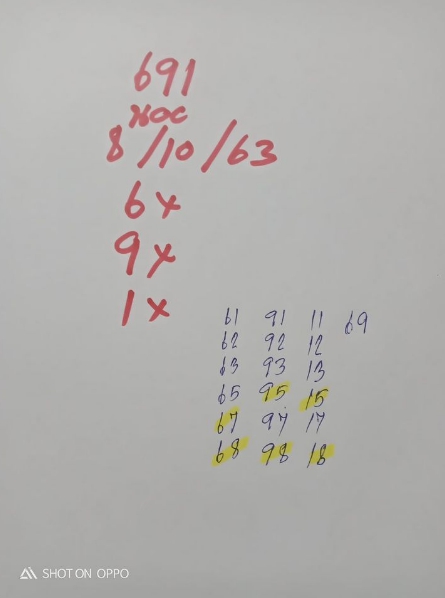 691
8/10/63
6x
9x
1x
61 91 11 69
62 92 12
63 93 13
65 95 15
67 97 17
68 98 18
SHOT ON OPPO